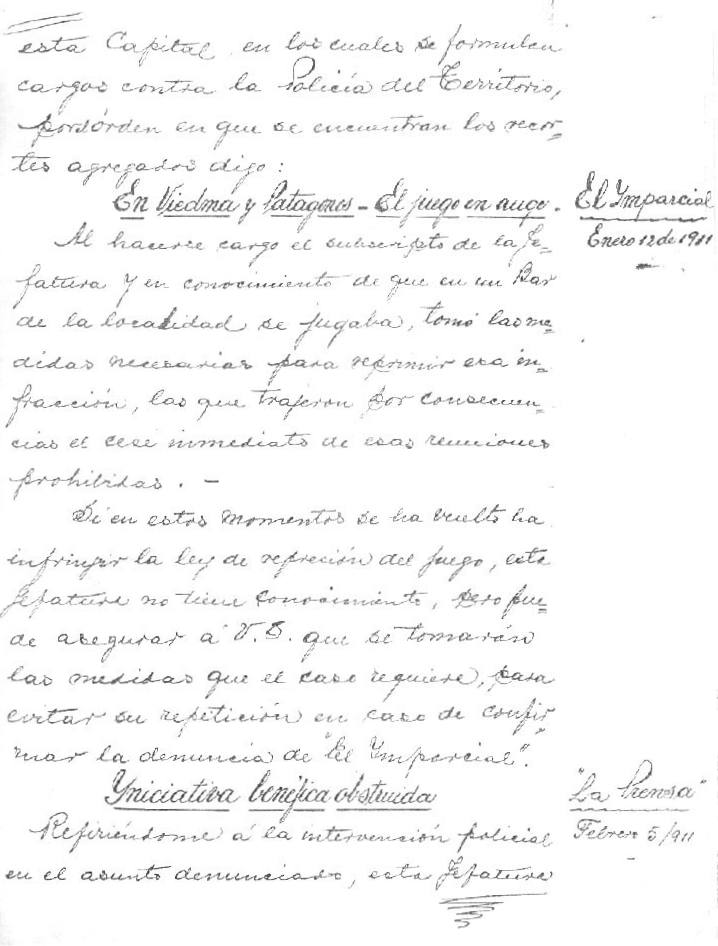 esta Capital, en los cuales se formulan
cargos contra la Policía del Territorio,
por órden en que se encuentran los recor-
tes agregados digo:
En Viedma y Patagones - El juego en auge. - El Imparcial
Enero 12 de 1911
Al hacerse cargo el subscripto de la Je-
fatura y en conocimiento de que en un Bar
de la localidad se jugaba, tomó las me-
didas necesarias para reprimir esa in-
fracción, las que trajeron por consecuen-
cias el cese inmediato de esas reuniones
prohibidas. -
Si en estos momentos se ha vuelto ha
infringir la ley de represión del juego, esta
Jefatura no tiene conocimiento, pero pue-
de asegurar á V.S. que se tomarán
las medidas que el caso requiere, para
evitar su repetición en caso de confir
mar la denuncia de "El Imparcial".
Yniciativa benéfica obstruida "La Prensa"
Febrero 5/911
Refiriéndome á la intervención policial
en el asunto denunciado, esta Jefatura